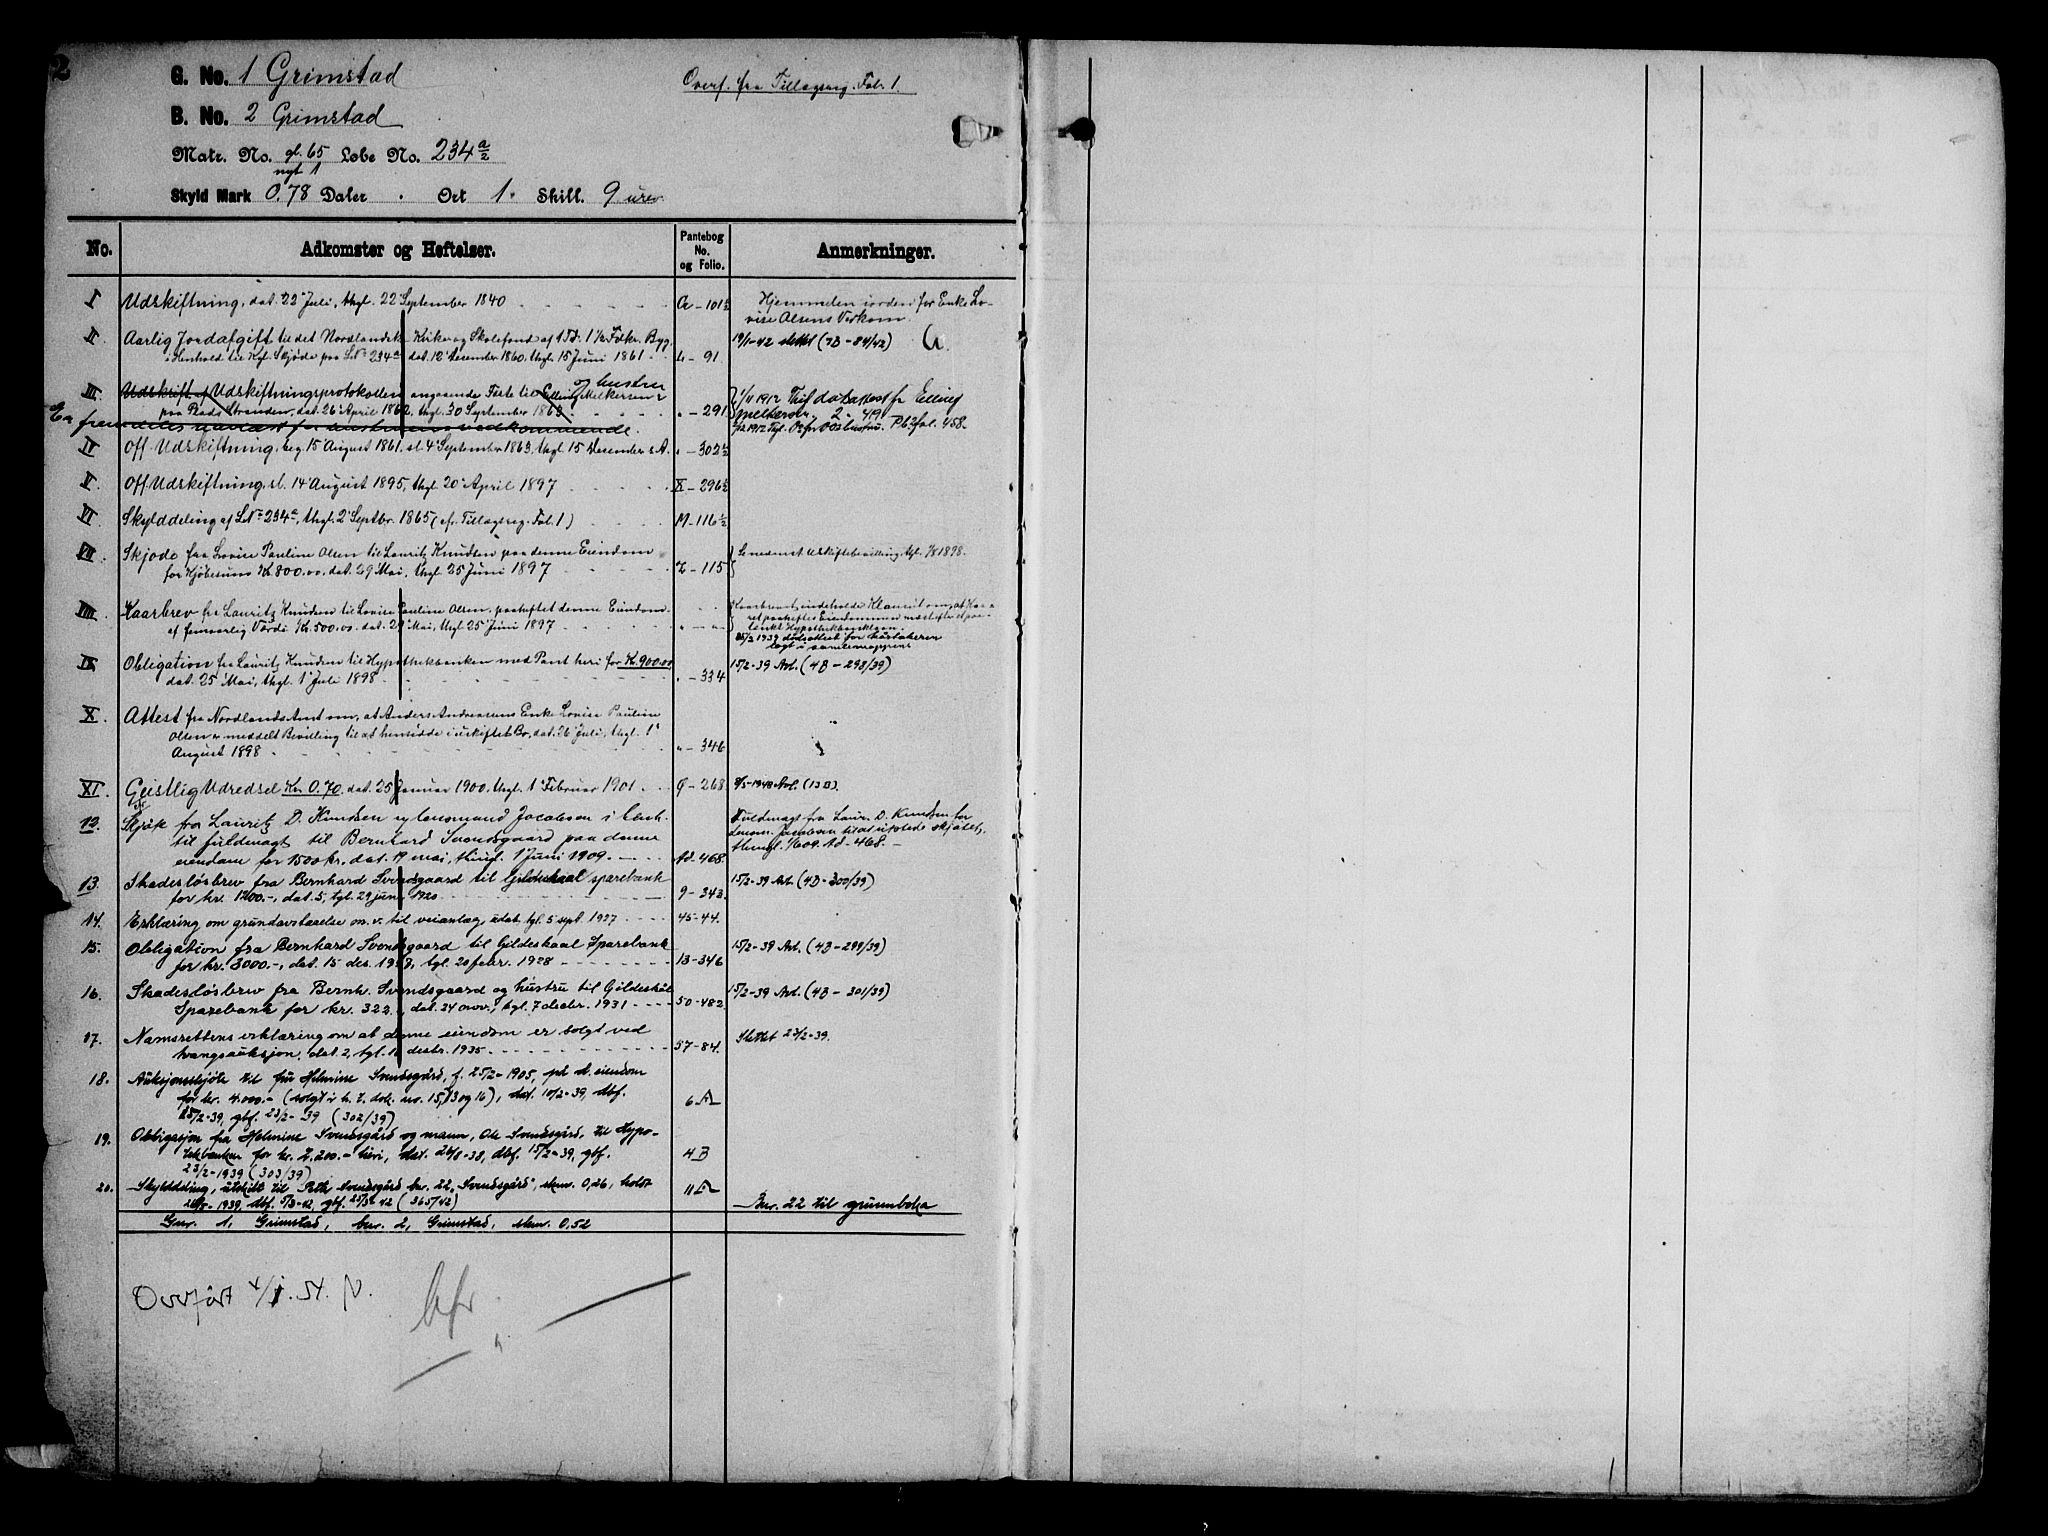 2
G. No. 1 Grimstad
Overf. fra Tillægsreg. Fol. 1.
B. No. 2 Grimstad
Matr. No. gl. 65 Løbe No. 234 a/2
nyt 1
Skyld Mark 0.78 Daler . Ort 1. Skill. 9 urev
No. Adkomster og Heftelser. Pantebog No. og Folio. Anmerkninger.
I Udskiftning, dat. 22 Juli, thgl. 22 September 1840 G - 101 Hjemmelen i orden for Enke Lo-
vise Olsens Verkom.
II Aarlig Jordafgift til det Nordlandske Kirke og Skolefond af 1 Td. 1 1/2 Fdkr. Byg 19/1-42 slettet (7B - 84/42)
i Henhold til Kgl. Skjøde paa LNr 234a dat. 12 December 1860, thgl. 15 Juni 1861 L - 91
III Udskrift af Udskiftningsprotokollen angaaende Feste til Elling Melkersen og hustru
paa Stranden, dat. 26 April 1862, thgl. 30 September 1863 " - 291
En fremdeles uavlæst for hustruens vedkommende.
1/11 1912 Thgl. dødsattest fr Elling
Melkersen 2 - 419
IV Off. Udskiftning, beg. 15 August 1861, sl. 4 September 1863, thgl. 15 December s. A. " - 302 1/2
V Off. Udskiftning, sl. 14 August 1895, thgl. 20 April 1897 X - 296
VI Skylddeling af LNr 234a, thgl. 2 Septbr. 1865 (cfr. Tillægsreg. Fol. 1) M - 116 1/2
VII Skjøde fra Lovise Pauline Olsen til Lauritz Knudsen paa denne Eiendom Se nedennt Uskiftebevilling, thgl. 1/8 1898.
for Kjøbesum Kr. 800.00, dat. 29 Mai, thgl. 25 Juni 1897 Z - 115
VIII Kaarbrev fra Lauritz Knudsen til Lovise Pauline Olsen, paaheftet denne Eiendom Kaarbrevet indeholder Klausul om, at Kaa-
af femaarlig Værdi Kr. 500.00 dat. 29 Mai, thgl. 25 Juni 1897 " - " ret paaheftes Eiendommen næstefter et paa-
tænkt Hypothekbanklaan.
25/2 1939 dødsattest for kårtakeren
lagt i samlemappene
IX Obligation fra Lauritz Knudsen til Hypothekbanken med Pant heri for Kr. 900.00 15/2-39 Avl. (4B - 298/39)
dat. 25 Mai, thgl. 1 Juli 1898 " - 334
X Attest fra Nordlands Amt om, at Anders Andreasens Enke Lovise Pauline
Olsen er meddelt Bevilling til at hensidde i uskiftet Bo, dat. 26 Juli, thgl. 1
August 1898 " - 346
XI. Geistlig Udredsel Kr. 0.70 dat. 25 Januar 1900. thgl. 1 Februar 1901 - 268 8/5-1948 Avl. (13B).
12. Skjøte fra Lauritz D. Knudsen og lensmand Jacobsen i hen- Fuldmagt fra Laur. D. Knudsen for
til fuldmagt til Bernhard Svendsgaard paa denne Lensm. Jacobsen til at utstede skjøtet,
eiendom for 1500 kr. dat. 19 mai, thingl. 1 Juni 1909. Ad. 468 thingl. 1/6 09. Ad - 468. -
13. Skadesløsbrev fra Bernhard Svendsgaard til Gildeskaal sparebank 15/2-39 Avl. (4B - 300/39)
for kr. 1200.-, dat. 5, tgl. 29 juni 1920 9 - 343
14. Erklæring om grundavstaaelse m. v. til veianlæg, udat. tgl. 5 sept. 1927 45-44.
15. Obligation fra Bernhard Svendsgaard til Gildeskaal Sparebank 15/2-39 Avl. (4B - 299/39)
for kr. 3000.-, dat. 15 des. 1927, tgl. 20 febr. 1928 13-346
16. Skadesløsbrev fra Bernh. Svendsgaard og hustru til Gildeskål 15/2-39 Avl. (4B - 301/39)
Sparebank for kr. 322., dat. 24 nov., tgl. 7 decbr. 1931 50-482
17. Namsrettens erklæring om at denne eiendom er solgt ved Slettet 23/2-39.
tvangsauksjon, dat. 2, tgl. desbr. 1935 57-84.
18. Auksjonsskjøte til fru Helmine Svendsgård, f. 25/2-1905, på d. eiendom
for kr. 4.000.- (solgt i h. t. dok. no. 15, 13 og 16), dat. 10/2-39, dbf. 6A
15/2-39, gbf. 23/2-39 (302/39)
19. Obligasjon fra Helmine Svendsgård og mann, Ole Svendsgård, til Hypo-
tekbanken for kr. 2.200.- heri, dat. 26/8-38, dbf. 15/2-39, gbf. 4B
23/2-1939 (303/39)
20. Skylddeling, utskilt til Svendsgård bnr. 22 "Svendsgård", skm. 0,26, holdt 11A
-1939, dbf. 5/3-42, gbf. 25/3 42 (365/42) Bnr. 22 til grunnboka
Gnr. 1, Grimstad, bnr. 2, Grimstad, skm. 0.52
Overført 4/1.54.